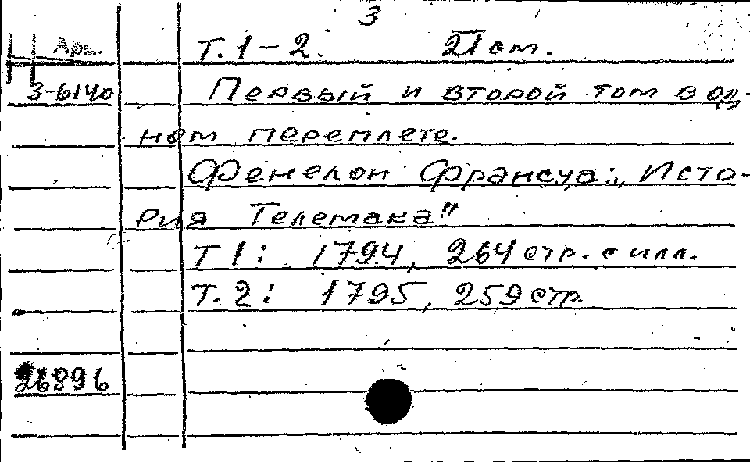 3
Арм. Т.1-2. 21 см.
3-6140 Первый и второй том в од-
ном переплете.
Фенелон Франсуа: „Исто-
рия Телемака"
Т 1: 1794, 264 стр. с илл.
Т. 2: 1795, 259 стр.
26896